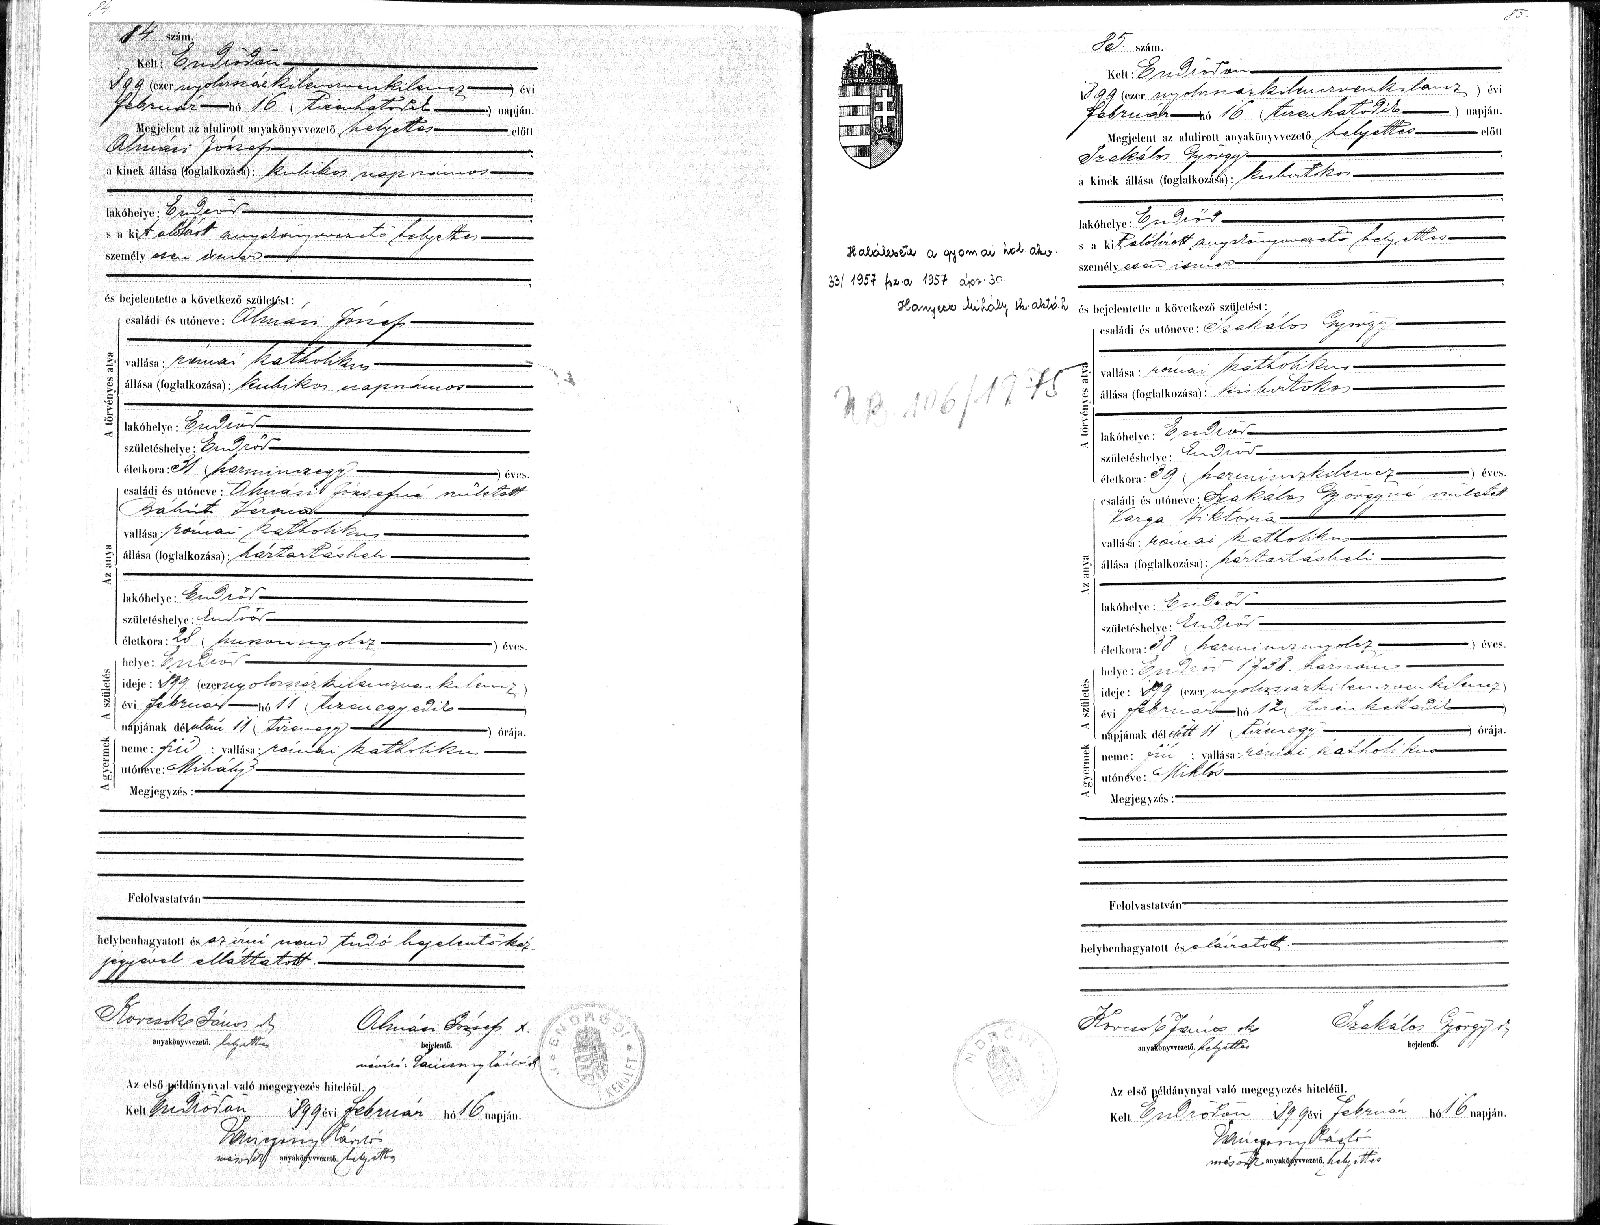 84
84 szám.
Kelt: Endrődön
899 (ezer nyolcszázkilenczvenkilencz) évi
február hó 16 (tizenhatodik) napján.
Megjelent az alulirott anyakönyvvezető helyettes előtt
Almási József
a kinek állása (foglalkozása): kubikos napszámos
lakóhelye: Endrőd
s a kit alólirt anyakönyvvezető helyettes
személyesen ismer
és bejelentette a következő születést:
A törvényes atya
családi és utóneve: Almási József
vallása: római katholikus
állása (foglalkozása): kubikos napszámos
lakóhelye: Endrőd
születéshelye: Endrőd
életkora: 31 (harminczegy) éves.
Az anya
családi és utóneve: Almási Józsefné született
Bálint Verona
vallása: római katholikus
állása (foglalkozása): háztartásbeli
lakóhelye: Endrőd
születéshelye: Endrőd
életkora: 28 (huszonnyolcz) éves.
A születés
helye: Endrőd
ideje: 899 (ezer nyolcszázkilenczvenkilencz)
évi február hó 11 (tizenegyedik)
napjának délután 11 (tizenegy) órája.
A gyermek
neme: fiú; vallása: római katholikus
utóneve: Mihály
Megjegyzés:
Felolvastatván
helybenhagyatott és az írni nem tudó bejelentő kéz-
jegyével elláttatott.
Kovcsok János
Almási József x
anyakönyvvezető. helyettes
bejelentő.
Az első példánynyal való megegyezés hiteléül.
Kelt Endrődön 899 évi február hó 16 napján.
anyakönyvvezető. helyettes
85.
85 szám.
Kelt: Endrődön
899 (ezer nyolcszázkilenczvenkilencz) évi
február hó 16 (tizenhatodik) napján.
Megjelent az alulirott anyakönyvvezető helyettes előtt
Szakálos György
a kinek állása (foglalkozása): kisbirtokos
lakóhelye: Endrőd
s a kit alólirott anyakönyvvezető helyettes
személyesen ismer
Halálesete a gyomai hal. akv.
33/1957 fsz. a 1957 ápr. 30
Hanyecz Mihály
és bejelentette a következő születést:
A törvényes atya
családi és utóneve: Szakálos György
vallása: római katholikus
állása (foglalkozása): kisbirtokos
106/1975
lakóhelye: Endrőd
születéshelye: Endrőd
életkora: 39 (harminczkilencz) éves.
Az anya
családi és utóneve: Szakálos Györgyné született
Varga Viktória
vallása: római katholikus
állása (foglalkozása): háztartásbeli
lakóhelye: Endrőd
születéshelye: Endrőd
életkora: 38 (harmincznyolcz) éves.
A születés
helye: Endrőd 1738. házszám
ideje: 899 (ezer nyolcszázkilenczvenkilencz)
évi február hó 12 (tizenkettedik)
napjának délelőtt 11 (tizenegy) órája.
A gyermek
neme: fiú; vallása: római katholikus
utóneve: Miklós
Megjegyzés:
Felolvastatván
helybenhagyatott és aláiratott.
Kovcsok János
Szakálos György
anyakönyvvezető. helyettes
bejelentő.
Az első példánynyal való megegyezés hiteléül.
Kelt Endrődön 899 évi február hó 16 napján.
anyakönyvvezető. helyettes